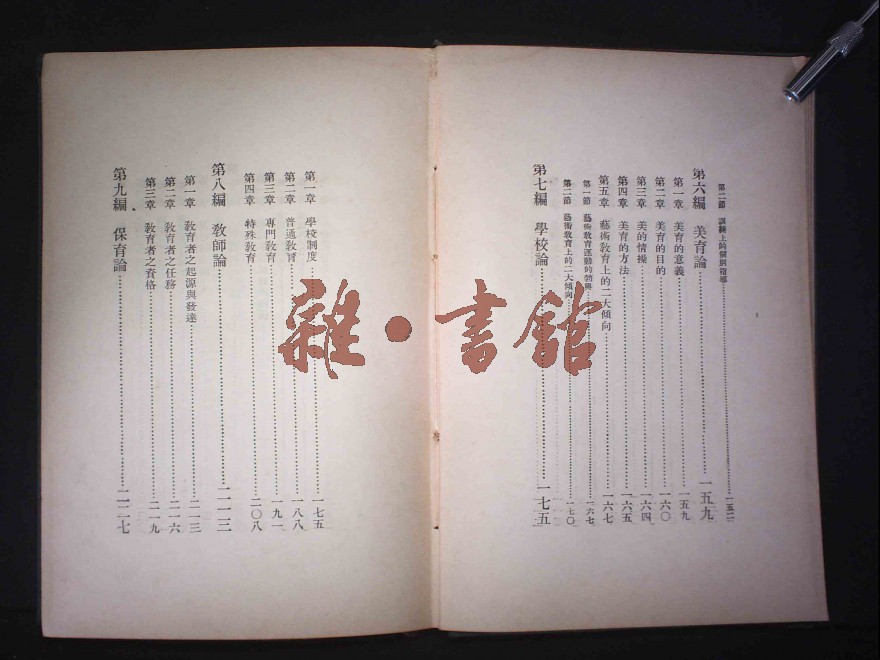 第二節 訓練上的個別指導 一五二
第六編 美育論 一五九
第一章 美育的意義 一五九
第二章 美育的目的 一六〇
第三章 美的情操 一六四
第四章 美育的方法 一六五
第五章 藝術教育上的二大傾向 一六七
第一節 藝術教育運動的 一六七
第二節 藝術教育上的二大傾向 一七〇
第七編 學校論 一七五
第一章 學校制度 一七五
第二章 普通教育 一八八
第三章 專門教育 一九一
第四章 特殊教育 二〇八
第八編 教師論 二一三
第一章 教育者之起源與發達 二一三
第二章 教育者之任務 二一六
第三章 教育者之資格 二一九
第九編 保育論 二二七
雜·書館